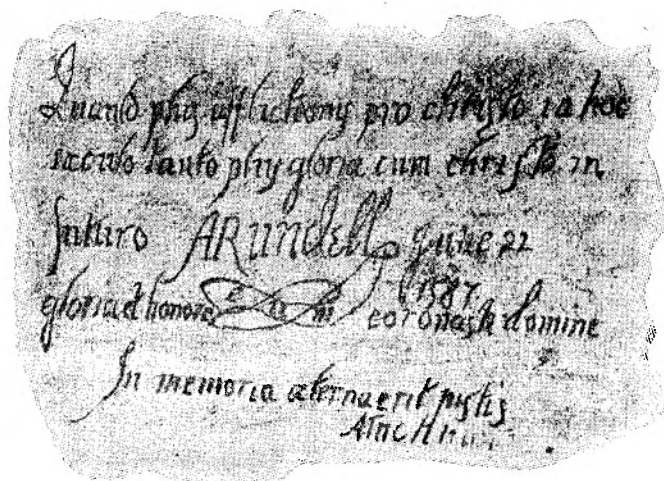 Quanto plus afflictionis pro christo in hoc
saeculo tanto plus gloriae cum christo in
futuro ARUNdell June 22
1587
gloria et honore eum coronasti domine
In memoria aeterna erit justis